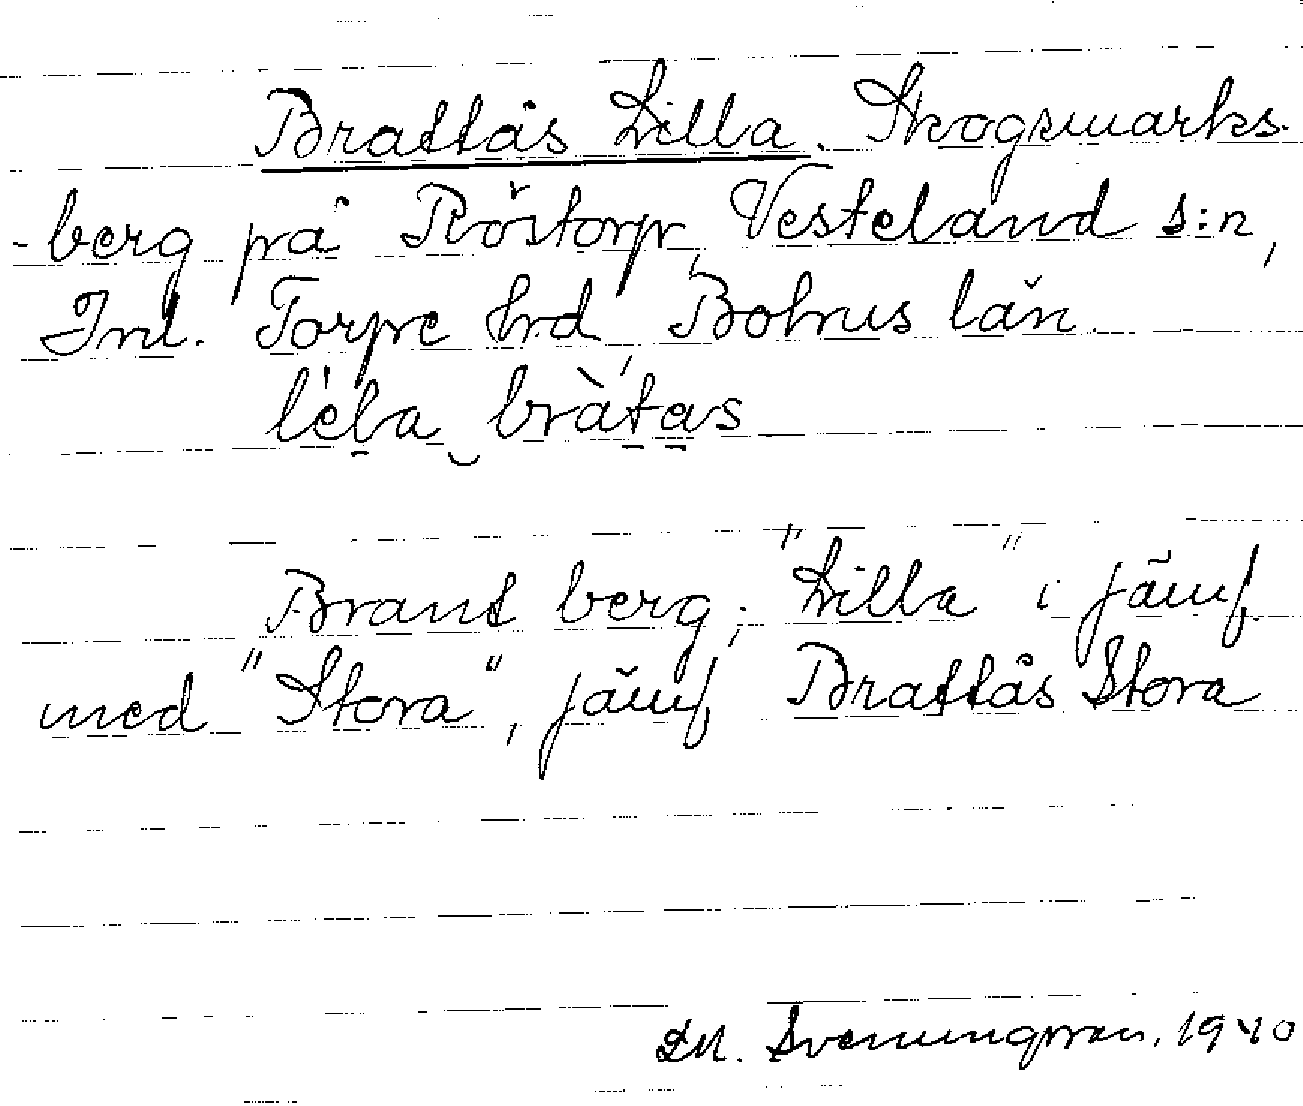 Brattås Lilla. Skogsmarks-
-berg på Röstorp, Vesteland s:n,
Inl. Torpe hrd, Bohus län.
lèla bràtas
Brant berg; "Lilla" i jämf.
med "Stora", jämf. Brattås Stora
Svenungsson, 1940